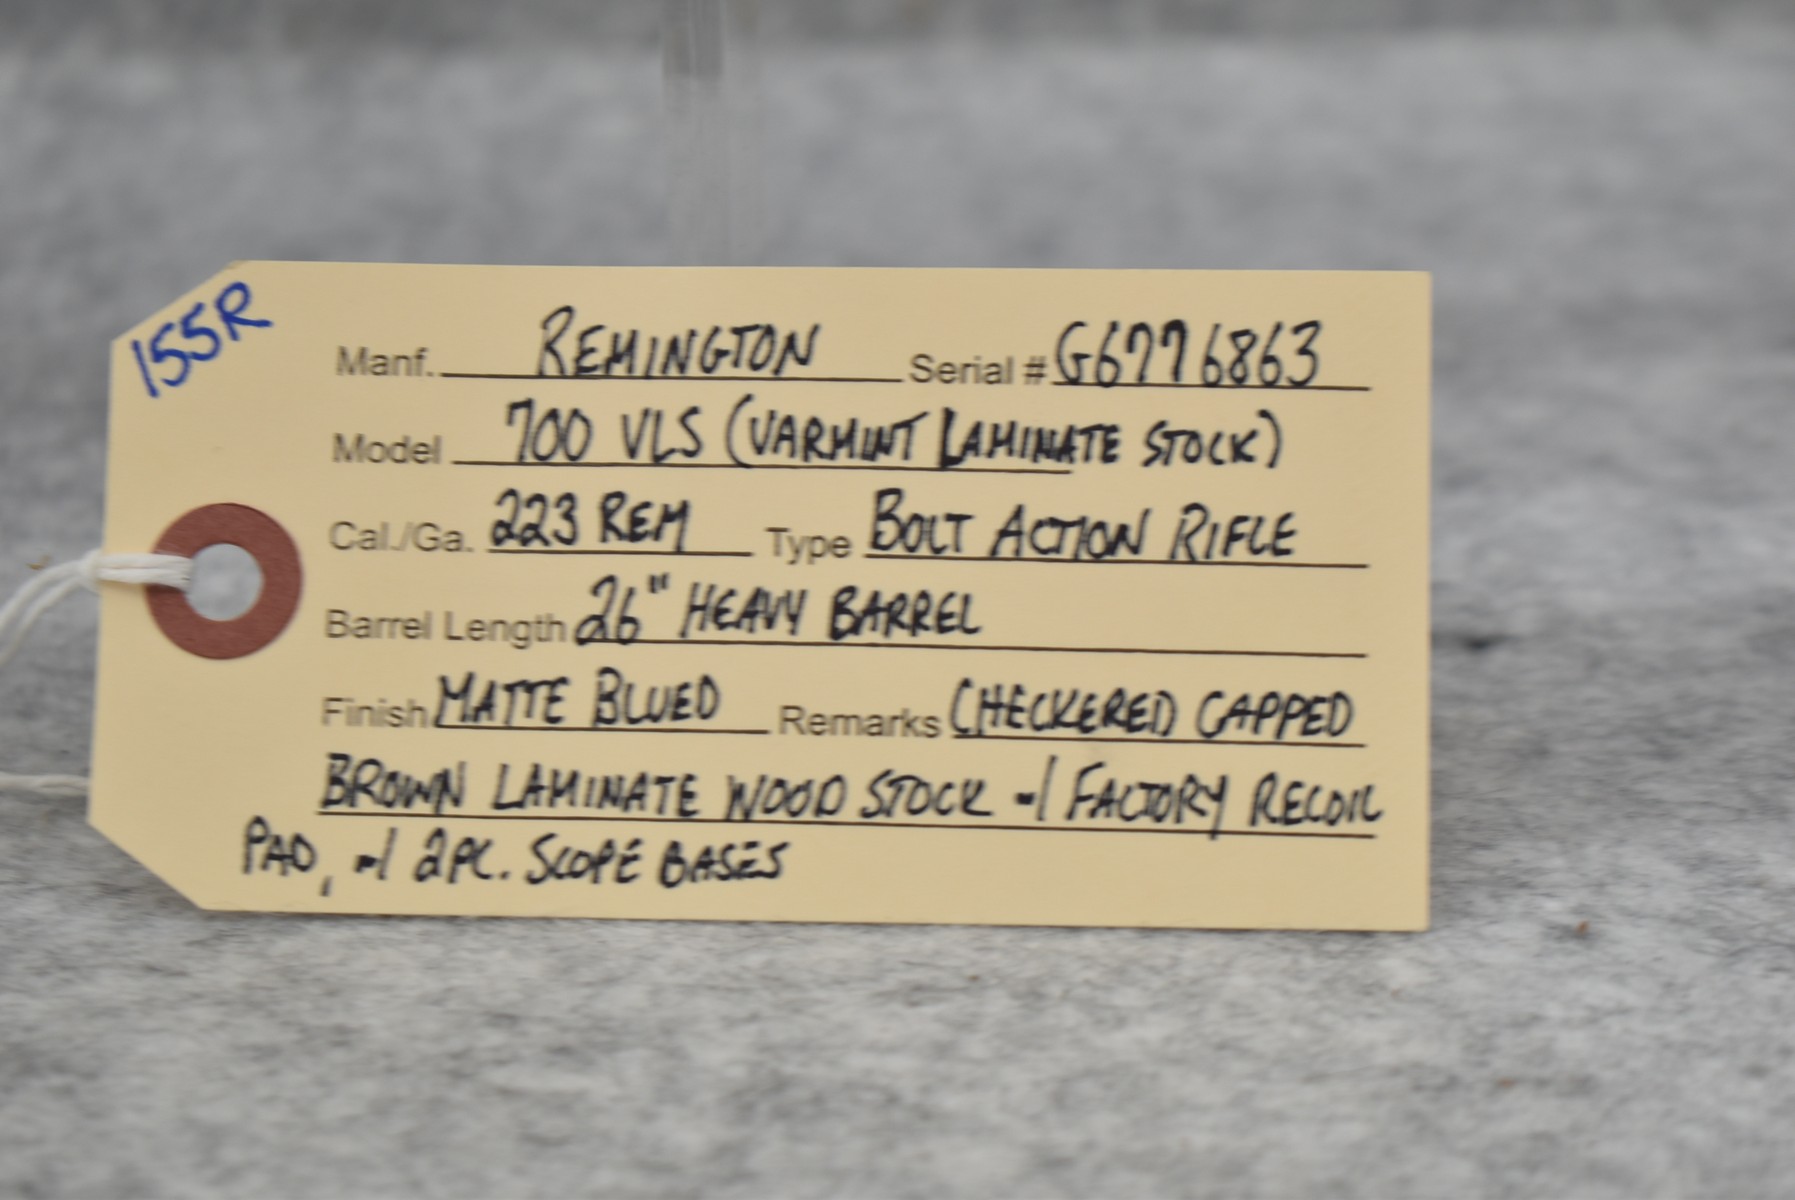 155R
Manf. REMINGTON Serial # G6776863
Model 700 VLS (VARMINT LAMINATE STOCK)
Cal./Ga. 223 REM Type BOLT ACTION RIFLE
Barrel Length 26" HEAVY BARREL
Finish MATTE BLUED Remarks CHECKERED CAPPED
BROWN LAMINATE WOOD STOCK w/ FACTORY RECOIL
PAD, w/ 2PC. SCOPE BASES